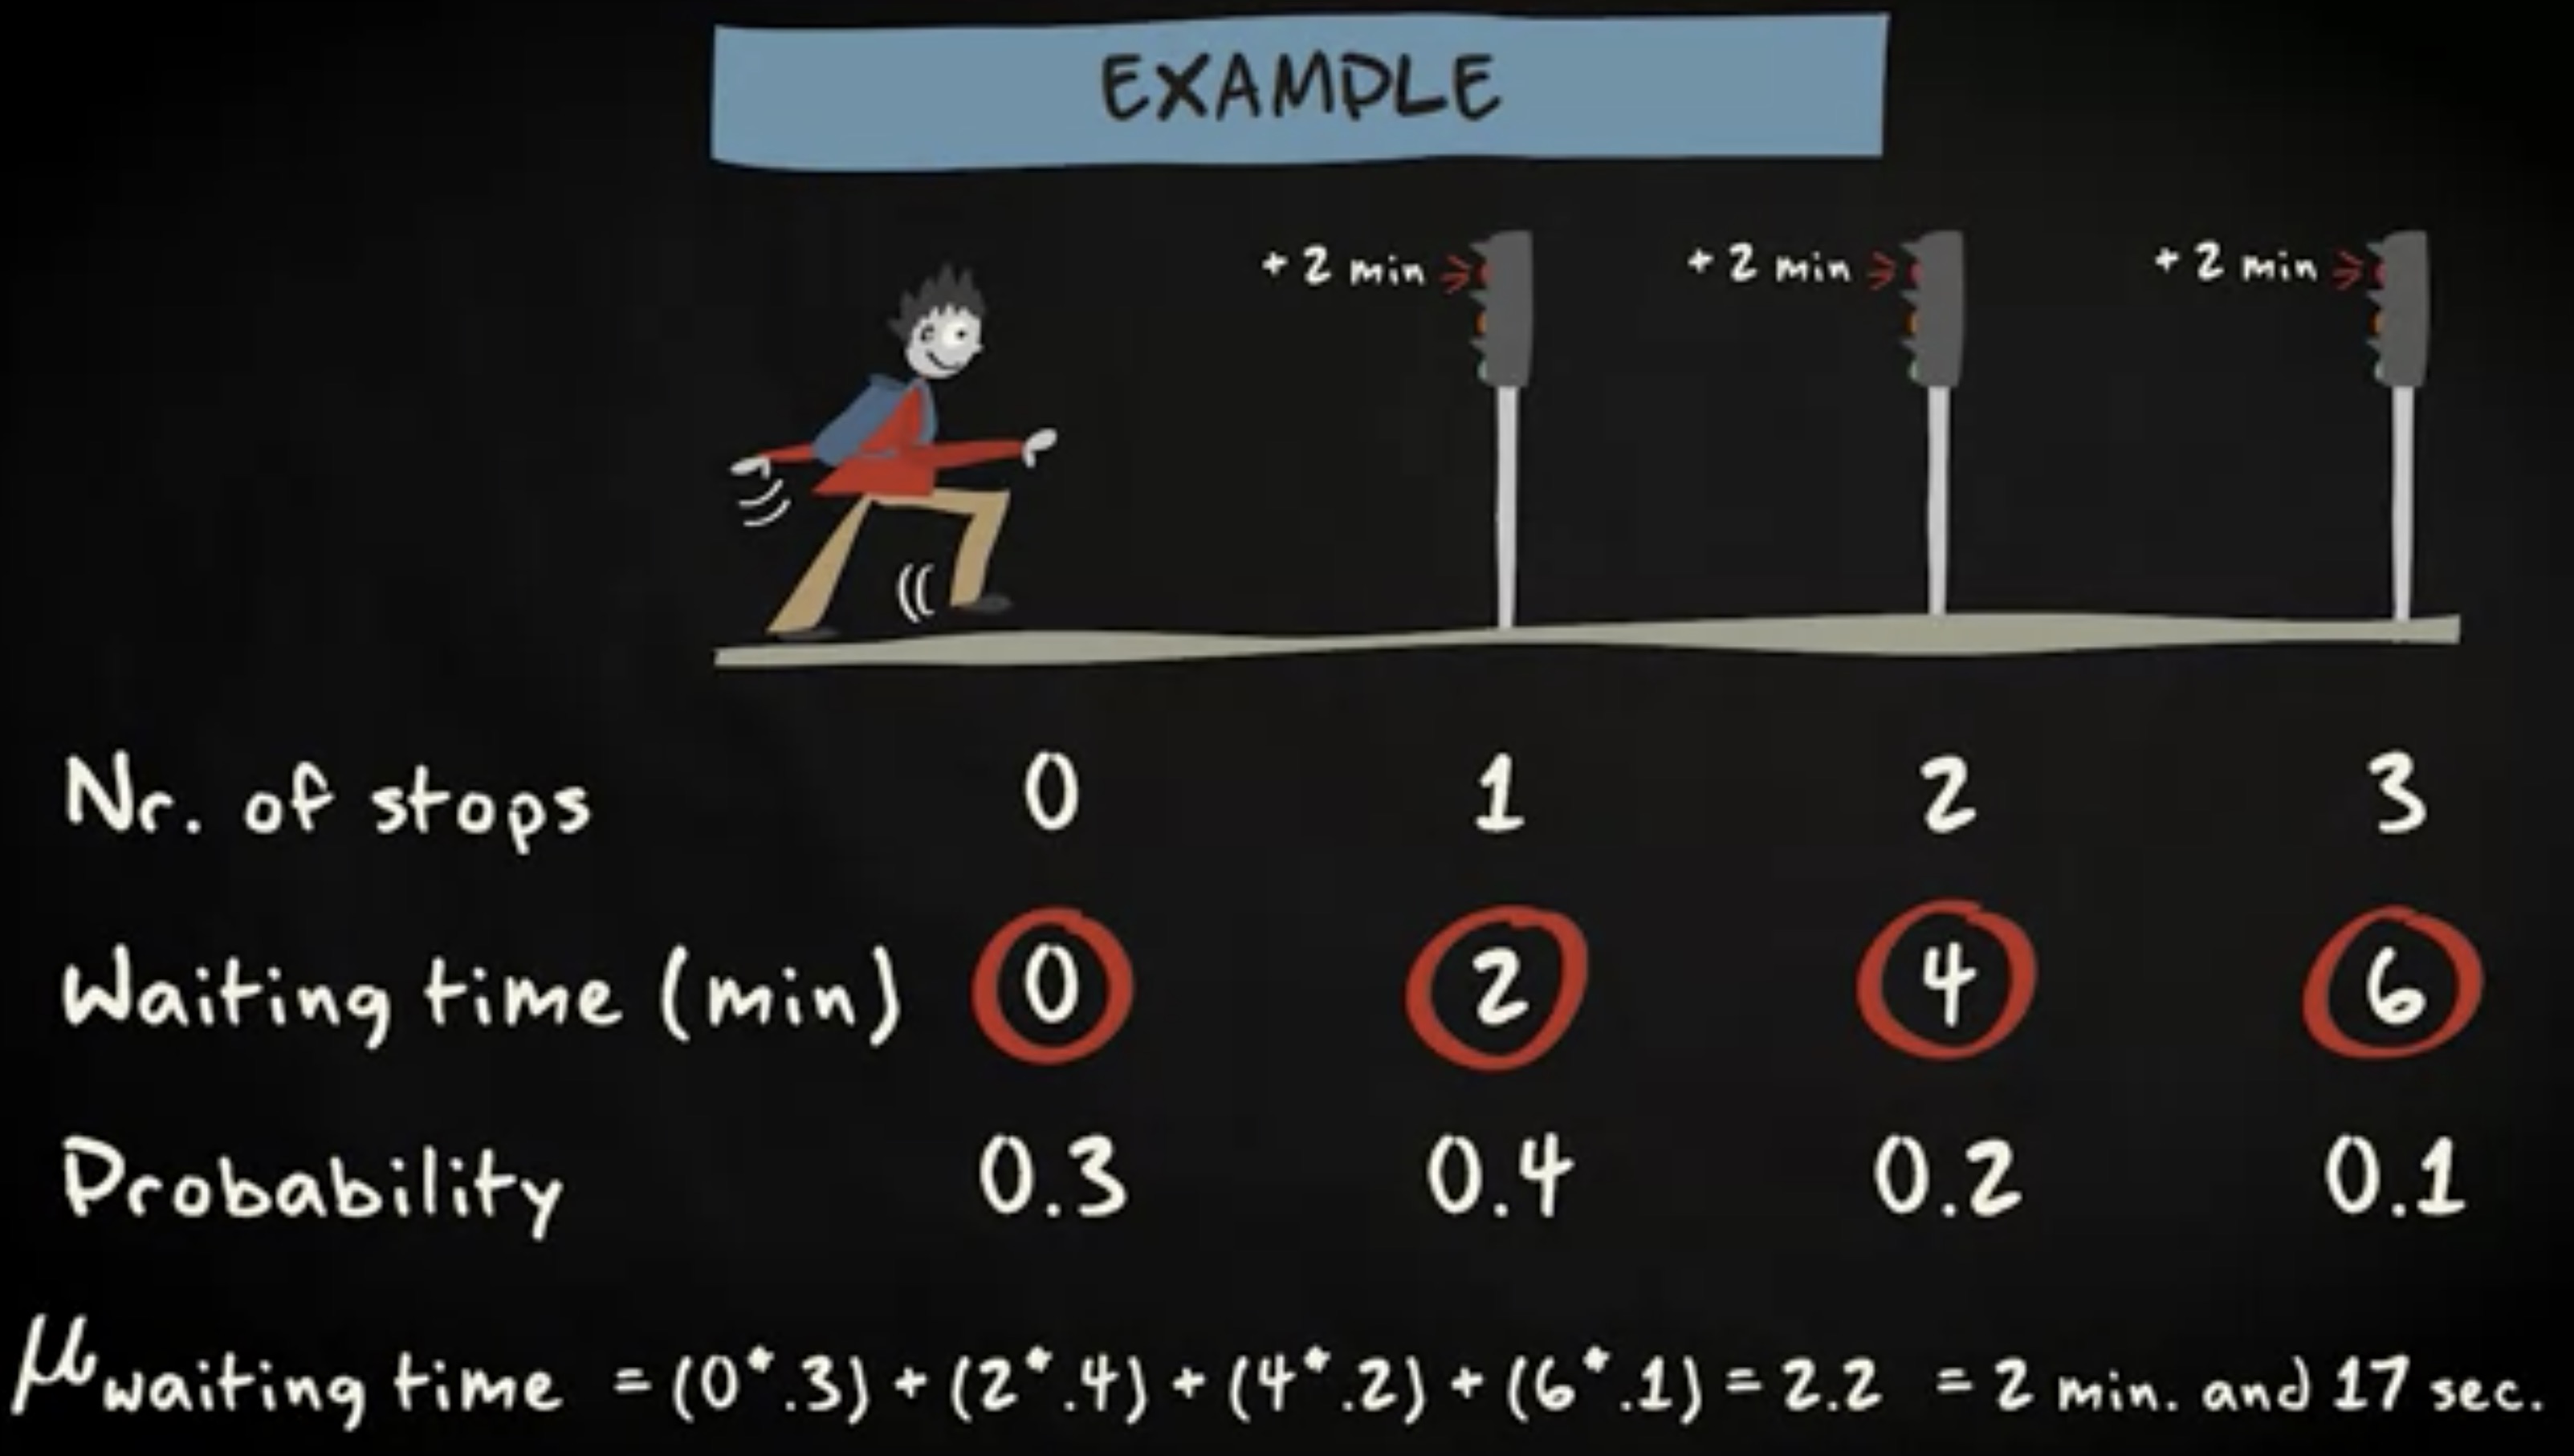 EXAMPLE
+ 2 min + 2 min + 2 min
Nr. of stops 0 1 2 3
Waiting time (min) 0 2 4 6
Probability 0.3 0.4 0.2 0.1
μ waiting time = (0*.3) + (2*.4) + (4*.2) + (6*.1) = 2.2 = 2 min. and 17 sec.